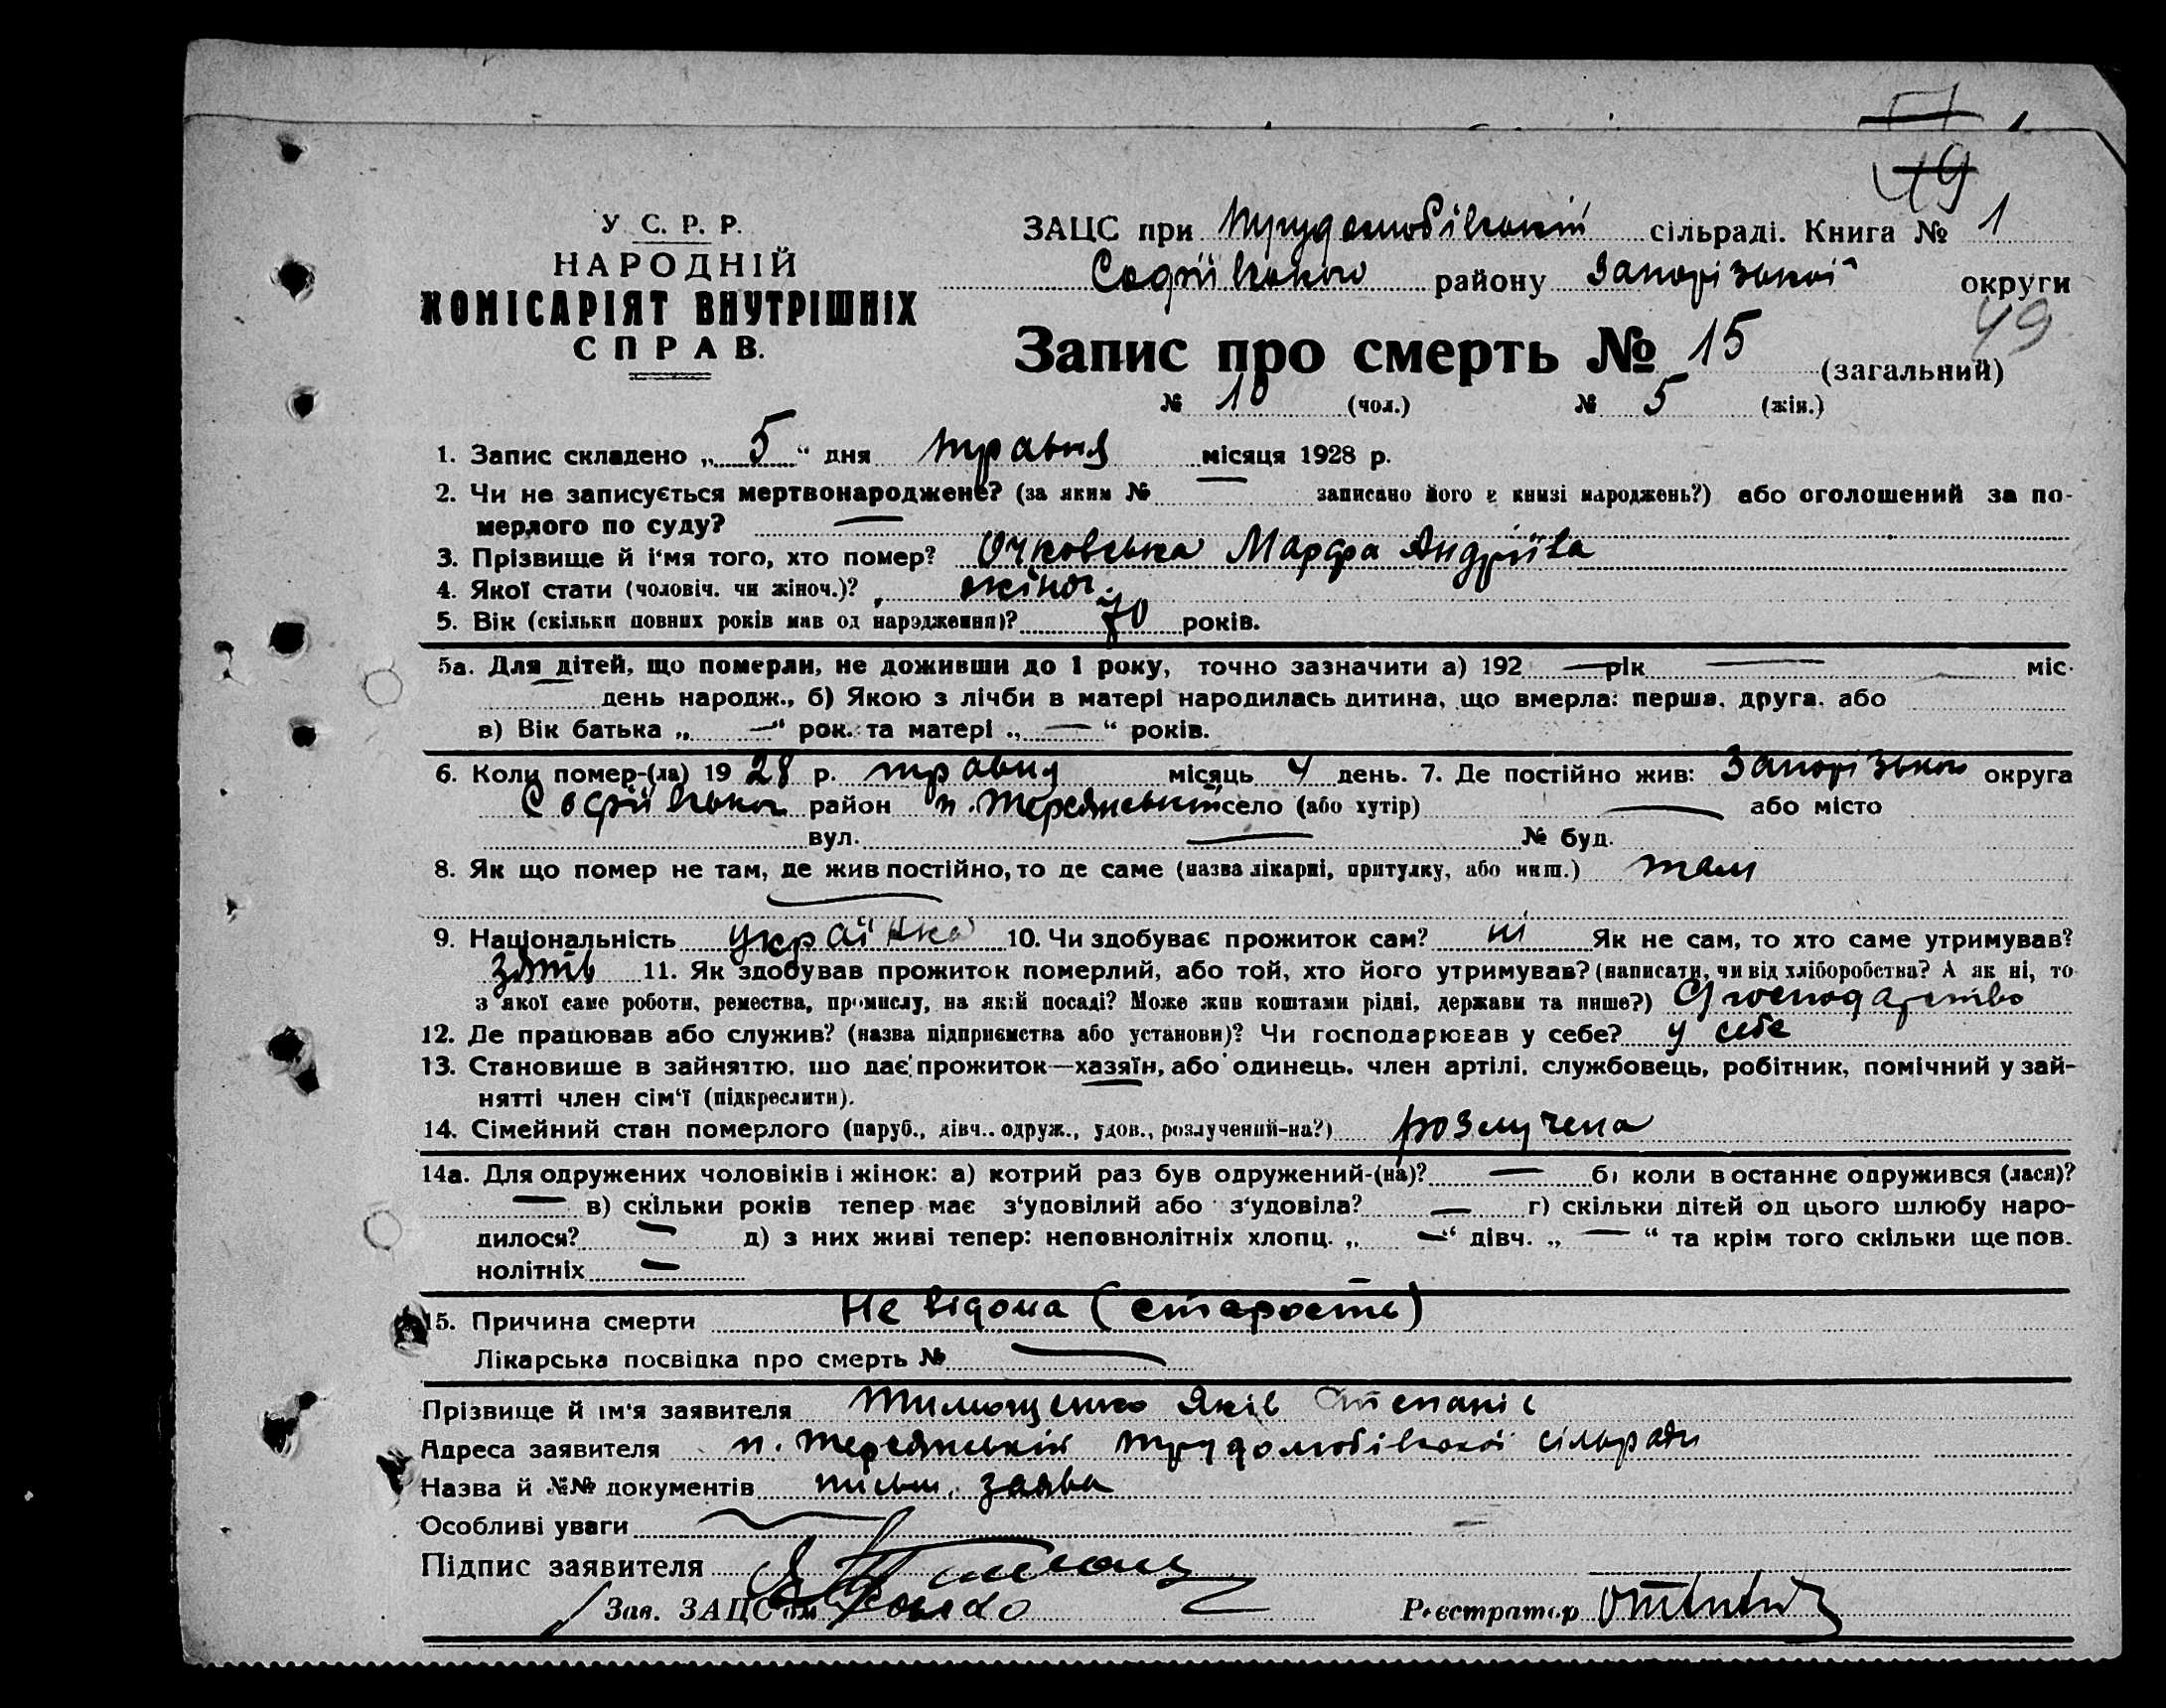 49
У. С. Р. Р.
НАРОДНІЙ
КОМІСАРІЯТ ВНУТРІШНІХ
СПРАВ.
ЗАЦС при Трудолюбівській сільраді. Книга № 1
Софіївського району Запорізької округи
49
Запис про смерть № 15 (загальний)
№ 10 (чол.) № 5 (жін.)
1. Запис складено „ 5 “ дня травня місяця 1928 р.
2. Чи не записується мертвонароджене? (за яким № — записано його в книзі народжень?) або оголошений за по-
мерлого по суду? —
3. Прізвище й і'мя того, хто помер? Очковська Марфа Андріїва
4. Якої стати (чоловіч. чи жіноч.)? жіноч.
5. Вік (скільки повних років мав од народження)? 70 років.
5а. Для дітей, що померли, не доживши до 1 року, точно зазначити а) 192 — рік — міс.
— день народж., б) Якою з лічби в матері народилась дитина, що вмерла: перша, друга, або
в) Вік батька „ — “ рок. та матері „ — “ років.
6. Коли помер-(ла) 19 28 р. травня місяць 4 день. 7. Де постійно жив: Запорізького округа
Софіївського район п. Терсянський село (або хутір) — або місто
вул. — № буд.
8. Як що помер не там, де жив постійно, то де саме (назва лікарні, притулку, або инш.) там
—
9. Національність українка 10. Чи здобуває прожиток сам? ні Як не сам, то хто саме утримував?
зять 11. Як здобував прожиток померлий, або той, хто його утримував? (написати, чи від хліборобства? А як ні, то
з якої саме роботи, ремества, промислу, на якій посаді? Може жив коштами рідні, держави та инше?) Сг господарство
12. Де працював або служив? (назва підприємства або установи)? Чи господарював у себе? у себе
13. Становище в зайняттю, що дає прожиток—хазяїн, або одинець, член артілі, службовець, робітник, помічний у зай-
нятті член сім'ї (підкреслити).
14. Сімейний стан померлого (паруб., дівч., одруж., удов., розлучений-на?) розлучена
14а. Для одружених чоловіків і жінок: а) котрий раз був одружений-(на)? — б) коли в останнє одружився (лася)?
— в) скільки років тепер має з'удовілий або з'удовіла? — г) скільки дітей од цього шлюбу наро-
дилося? — д) з них живі тепер: неповнолітніх хлопц. „ — “ дівч. „ — “ та крім того скільки ще пов.
нолітніх —
15. Причина смерти Не відома (старость)
Лікарська посвідка про смерть № —
Прізвище й ім'я заявителя Тимощенко Яків Степанів
Адреса заявителя п. Терсянській Трудолюбівської сільради
Назва й №№ документів письм. заява
Особливі уваги —
Підпис заявителя
Зав. ЗАЦС'ом
Реєстратор